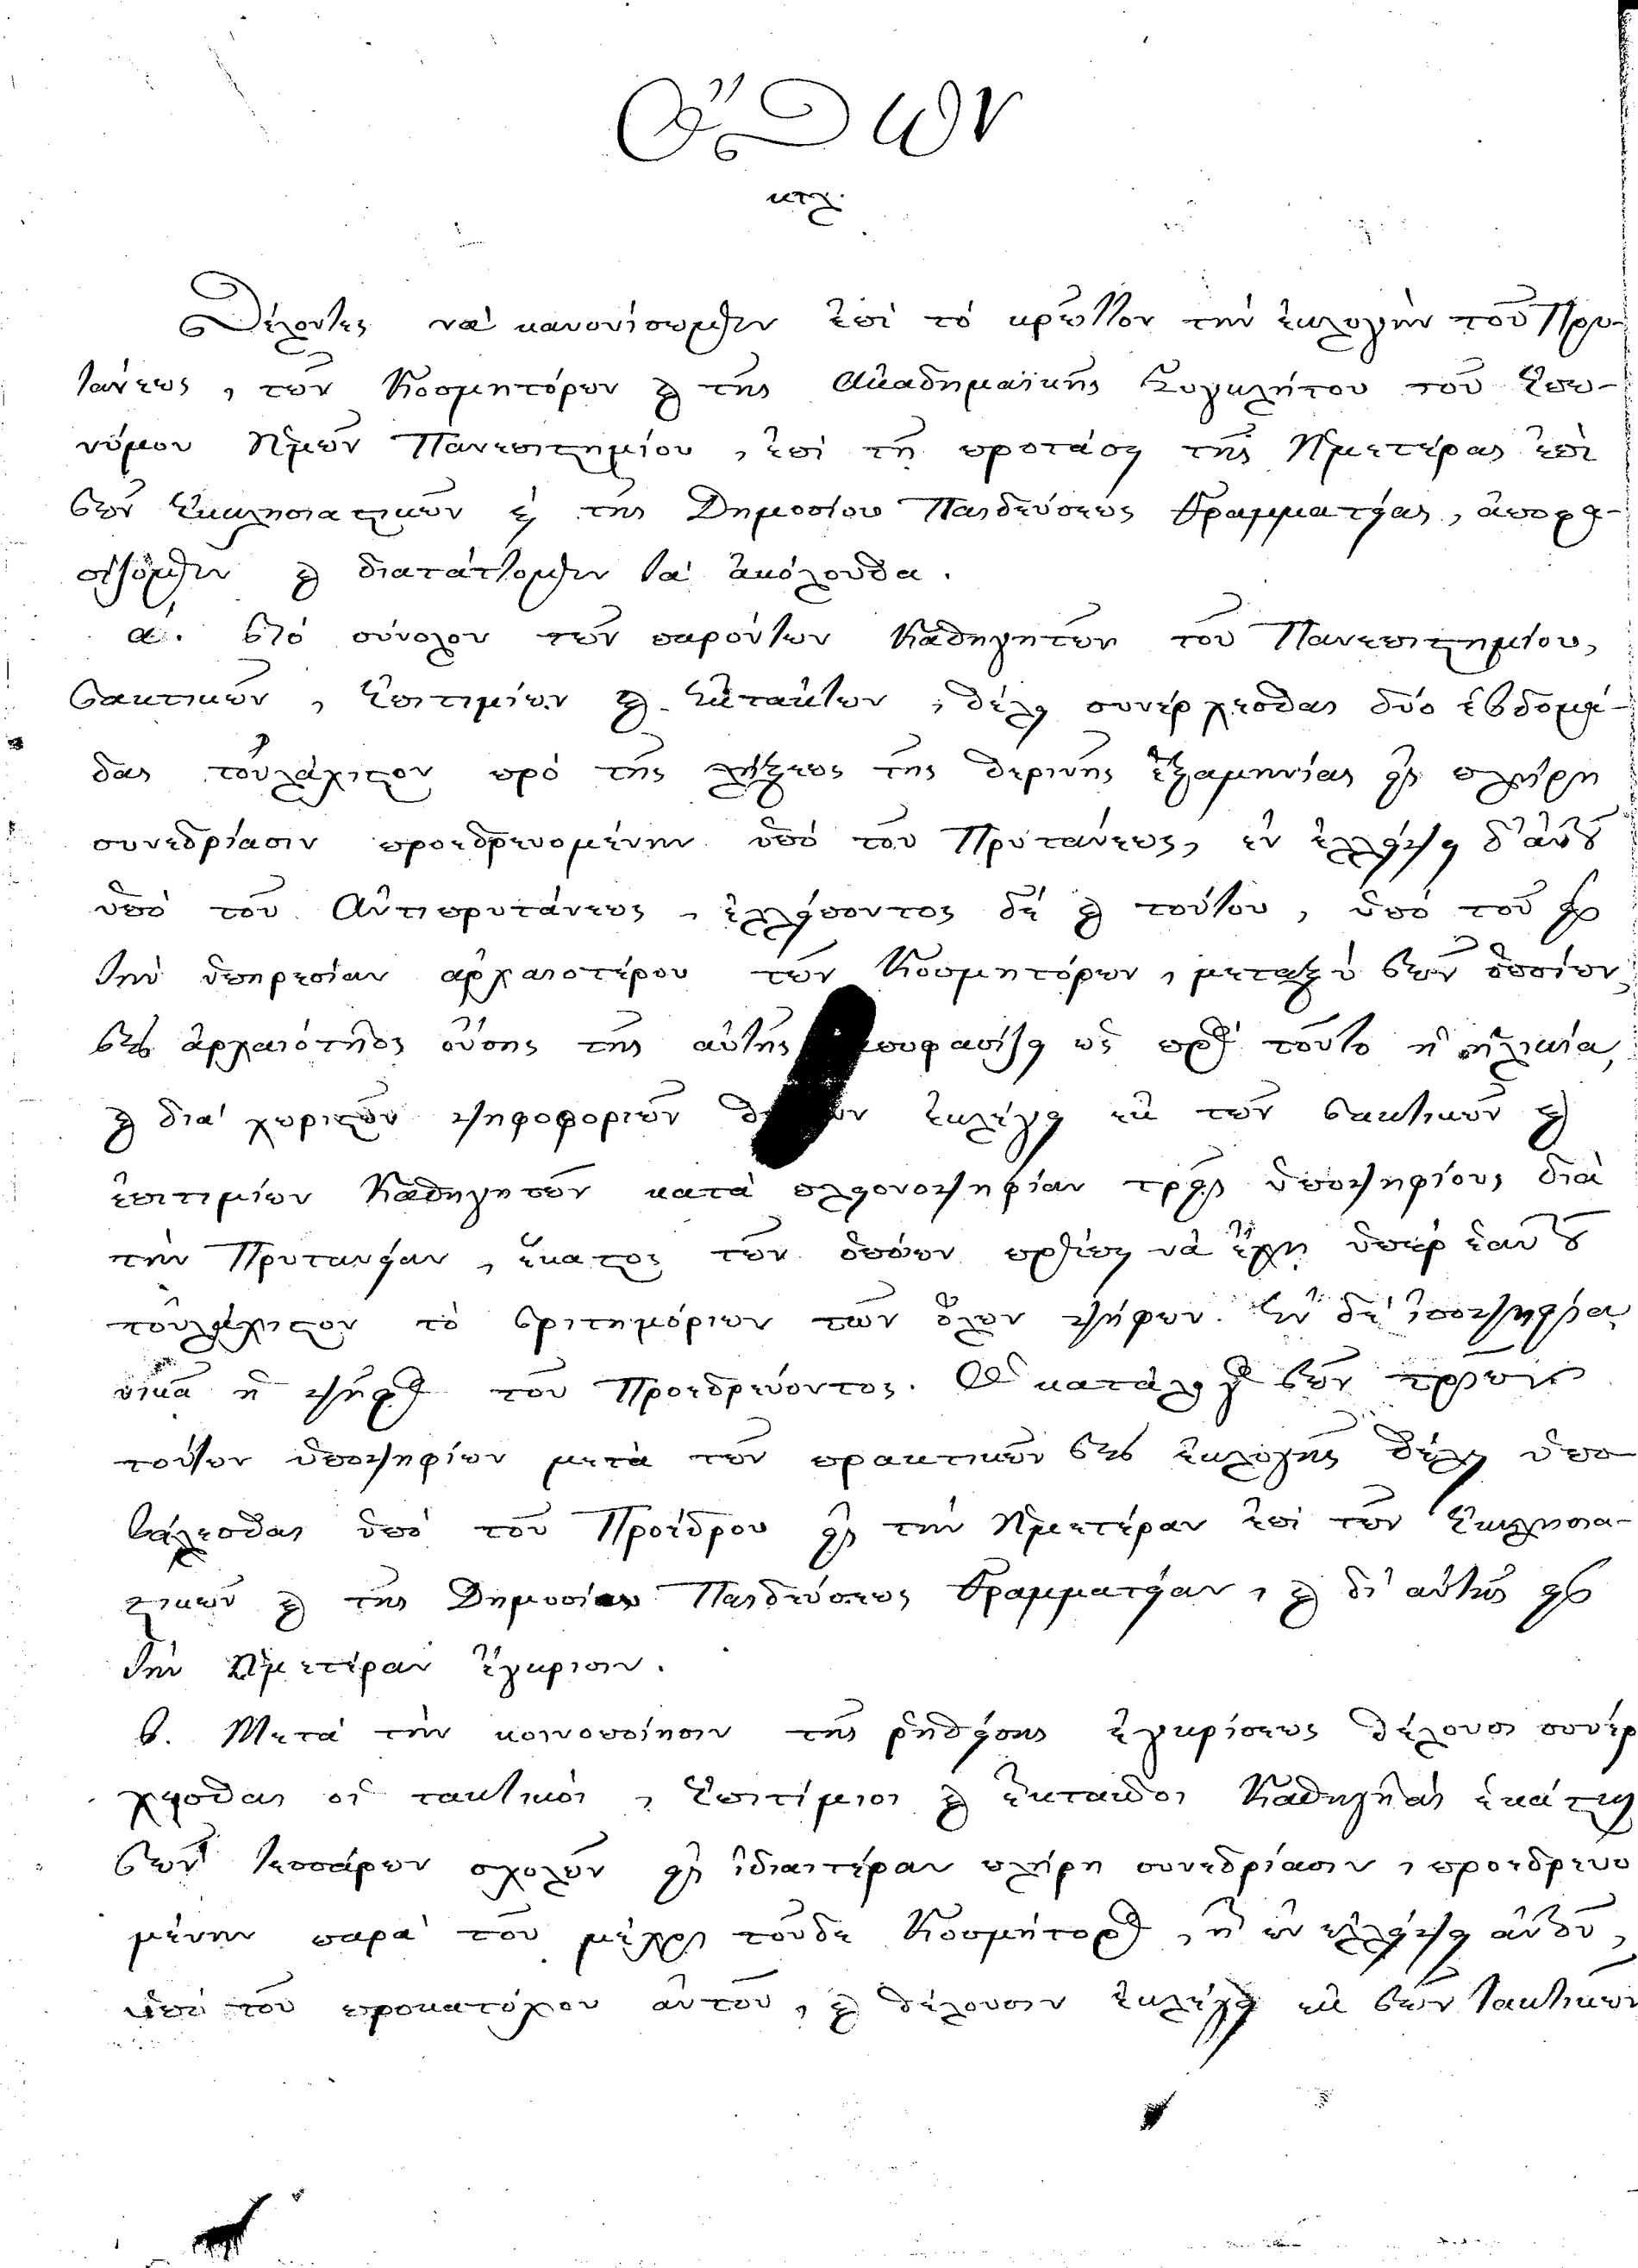 Ὄθων
κτλ.
Θέλοντες νὰ κανονίσωμεν ἐπὶ τὸ κρεῖττον τὴν ἐκλογὴν τοῦ Πρυ-
τάνεως, τῶν Κοσμητόρων καὶ τῆς Ἀκαδημαϊκῆς Συγκλήτου τοῦ Ἐπω-
νύμου Ἡμῶν Πανεπιστημίου, ἐπὶ τῇ προτάσει τῆς Ἡμετέρας ἐπὶ
τῶν Ἐκκλησιαστικῶν καὶ τῆς Δημοσίου Παιδεύσεως Γραμματείας, ἀποφα-
σίζομεν καὶ διατάττομεν τὰ ἀκόλουθα.
α. Τὸ σύνολον τῶν παρόντων Καθηγητῶν τοῦ Πανεπιστημίου,
τακτικῶν, Ἐπιτιμίων καὶ Ἐκτάκτων, θέλει συνέρχεσθαι δύο ἑβδομά-
δας τοὐλάχιστον πρὸ τῆς λήξεως τῆς θερινῆς ἑξαμηνίας εἰς πλήρη
συνεδρίασιν προεδρευομένην ὑπὸ τοῦ Πρυτάνεως, ἐν ἐλλείψει δ' αὐτοῦ
ὑπὸ τοῦ Ἀντιπρυτάνεως, ἐλλείποντος δὲ καὶ τούτου, ὑπὸ τοῦ εἰς
τὴν ὑπηρεσίαν ἀρχαιοτέρου τῶν Κοσμητόρων, μεταξὺ τῶν ὁποίων,
τῆς ἀρχαιότητος οὔσης τῆς αὐτῆς κουφασίζει ὡς πρὸς τοῦτο ἡ ἡλικία,
καὶ διὰ χωριστῶν ψηφοφοριῶν ἐκλέγει ἐκ τῶν τακτικῶν καὶ
ἐπιτιμίων Καθηγητῶν κατὰ πλειονοψηφίαν τρεῖς ὑποψηφίους διὰ
τὴν Πρυτανείαν, ἕκαστος τῶν ὁποίων πρέπει νὰ ἔχῃ ὑπὲρ ἑαυτοῦ
τοὐλάχιστον τὸ τριτημόριον τῶν ὅλων ψήφων. Ἐν δὲ ἰσοψηφίᾳ
νικᾷ ἡ ψῆφος τοῦ Προεδρεύοντος. Ὁ κατάλογος τῶν τριῶν
τούτων ὑποψηφίων μετὰ τῶν πρακτικῶν τῆς ἐκλογῆς θέλει ὑπο
βάλεσθαι ὑπὸ τοῦ Προέδρου εἰς τὴν Ἡμετέραν ἐπὶ τῶν Ἐκκλησια-
στικῶν καὶ τῆς Δημοσίας Παιδεύσεως Γραμματείαν, καὶ δι' αὐτῆς εἰς
τὴν Ἡμετέραν ἔγκρισιν.
β. Μετὰ τὴν κοινοποίησιν τῆς ῥηθείσης ἐγκρίσεως θέλουσι συνέρ
χεσθαι οἱ τακτικοὶ, Ἐπιτίμιοι καὶ ἔκτακτοι Καθηγηταὶ ἑκάστης
τῶν τεσσάρων σχολῶν εἰς ἰδιαιτέραν πλήρη συνεδρίασιν, προεδρευο
μένην παρὰ τοῦ μέχρι τοῦδε Κοσμήτορος, ἢ ἐν ἐλλείψει αὐτοῦ,
ὑπὸ τοῦ προκατόχου αὐτοῦ, καὶ θέλουσιν ἐκλέγει ἐκ τῶν τακτικῶν